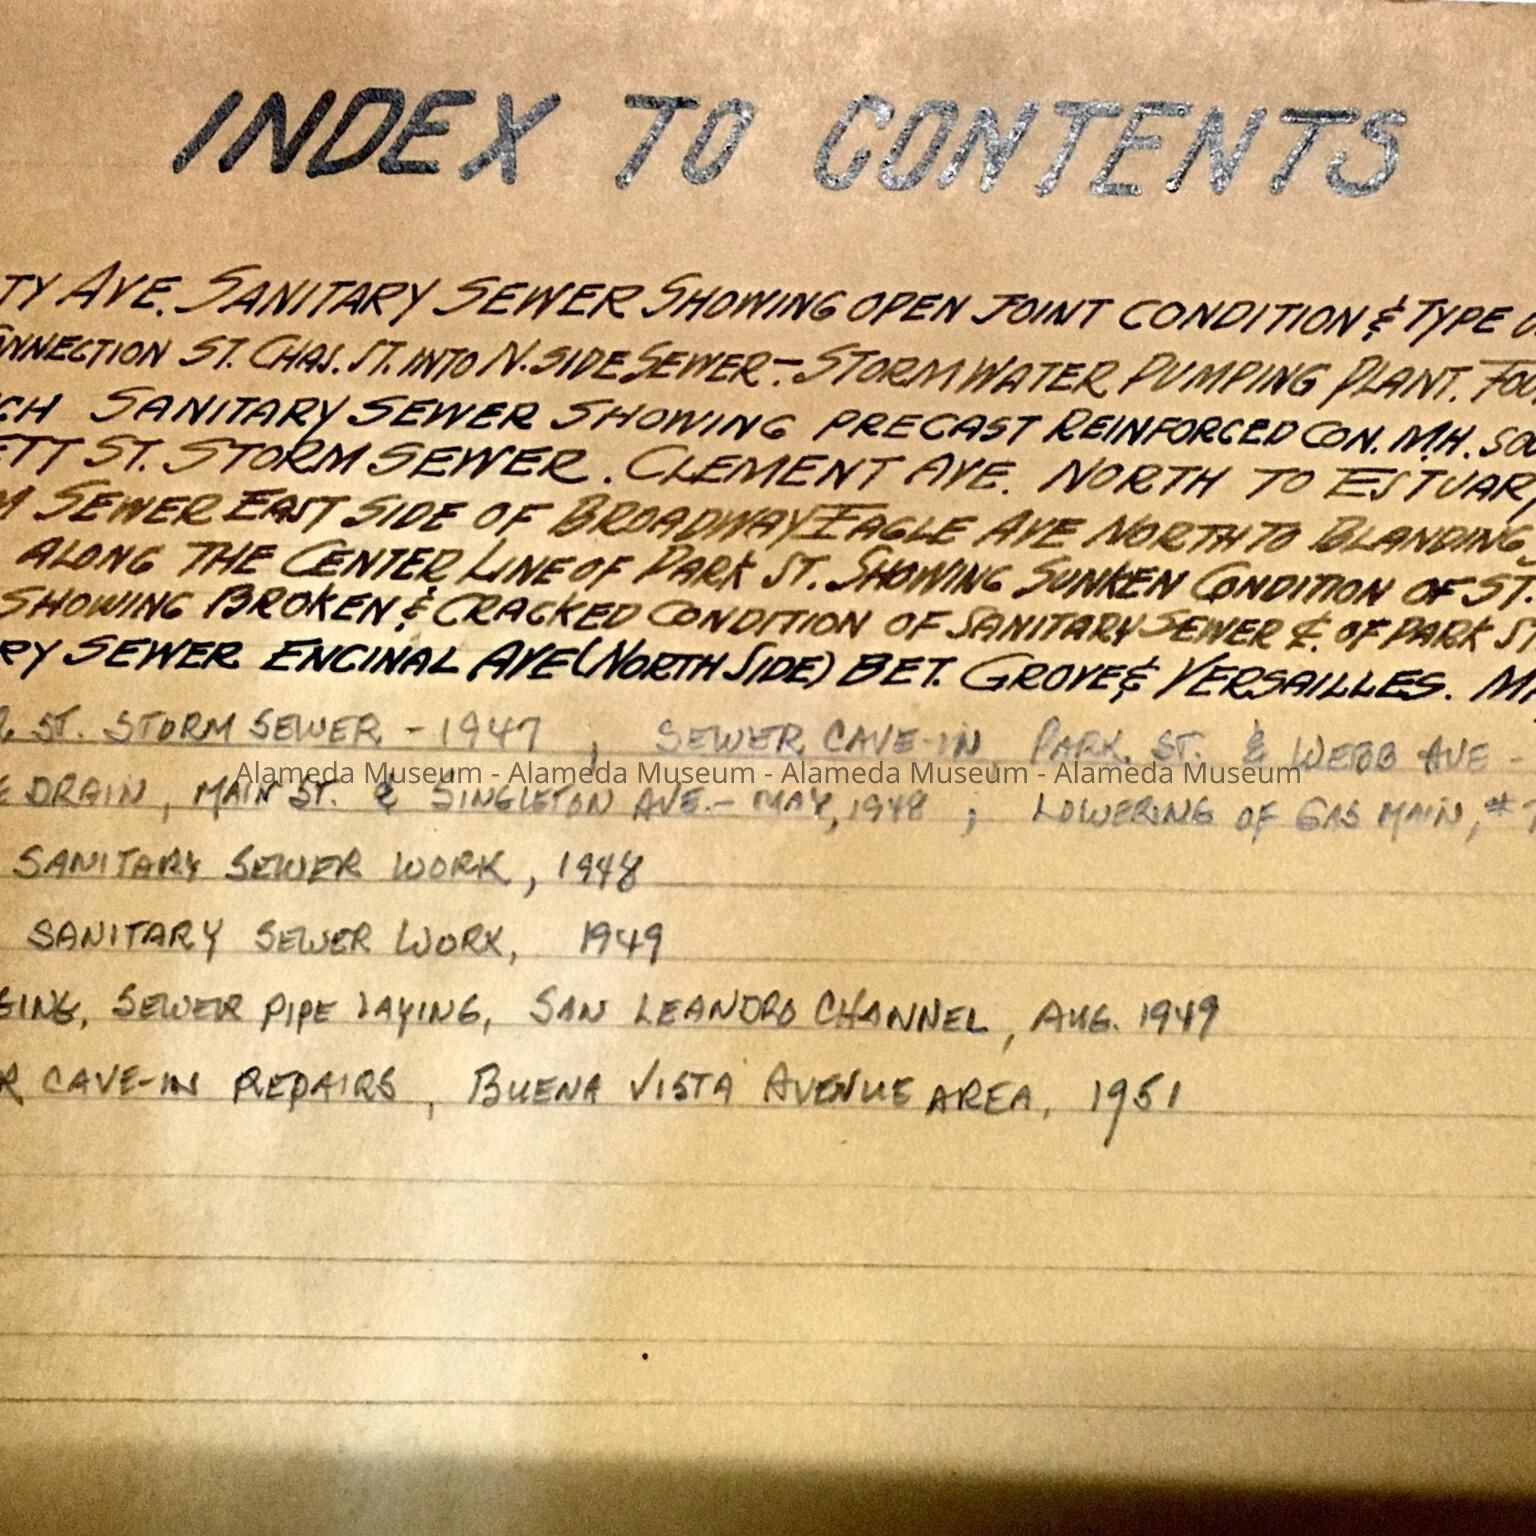 INDEX TO CONTENTS
TY AVE. SANITARY SEWER SHOWING OPEN JOINT CONDITION & TYPE O
NNECTION ST. CHAS. ST. INTO N. SIDE SEWER - STORM WATER PUMPING PLANT. FOO
CH SANITARY SEWER SHOWING PRECAST REINFORCED CON. M.H. SOU
ETT ST. STORM SEWER. CLEMENT AVE. NORTH TO ESTUARY
M SEWER EAST SIDE OF BROADWAY EAGLE AVE NORTH TO BLANDING
ALONG THE CENTER LINE OF PARK ST. SHOWING SUNKEN CONDITION OF ST.
SHOWING BROKEN & CRACKED CONDITION OF SANITARY SEWER ₵. OF PARK ST
RY SEWER ENCINAL AVE (NORTH SIDE) BET. GROVE & VERSAILLES. MA
ST. STORM SEWER - 1947, SEWER CAVE-IN, PARK ST. & WEBB AVE -
Alameda Museum - Alameda Museum - Alameda Museum - Alameda Museum
E DRAIN, MAIN ST. & SINGLETON AVE. - MAY, 1948 ; LOWERING OF GAS MAIN, #
SANITARY SEWER WORK, 1948
SANITARY SEWER WORK, 1949
GING, SEWER PIPE LAYING, SAN LEANDRO CHANNEL, AUG. 1949
R CAVE-IN REPAIRS, BUENA VISTA AVENUE AREA, 1951